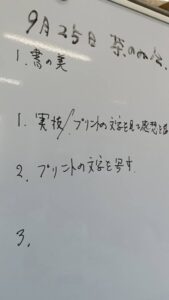 9月25日
1.書の美
1.実技/プリントの文字を見て感想を
2.プリントの文字を写す
3.